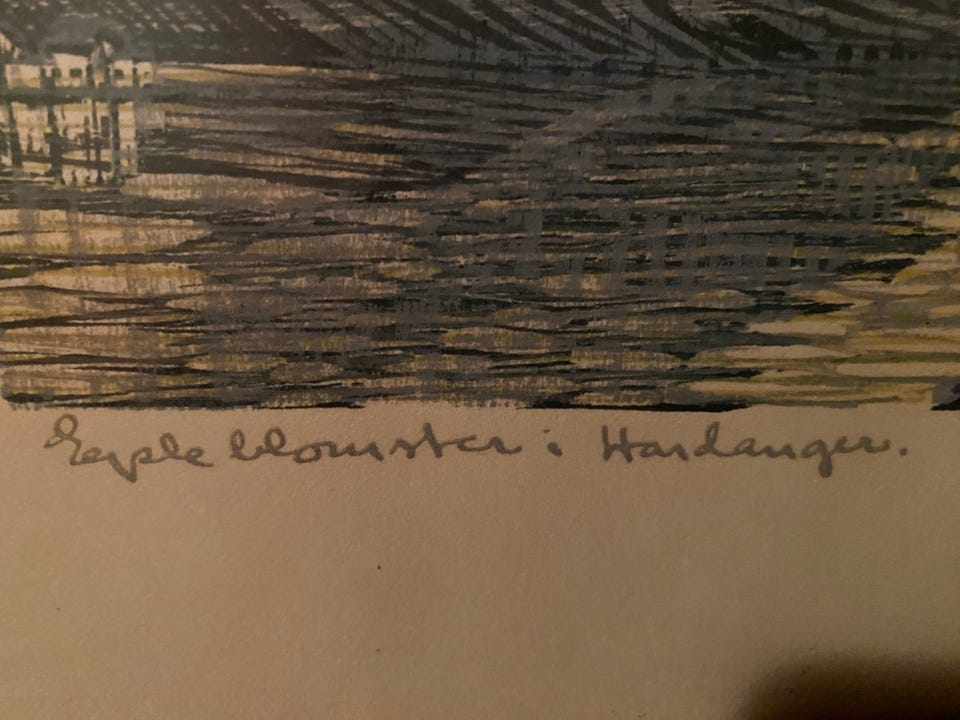 Eepleblomster i Hardanger.